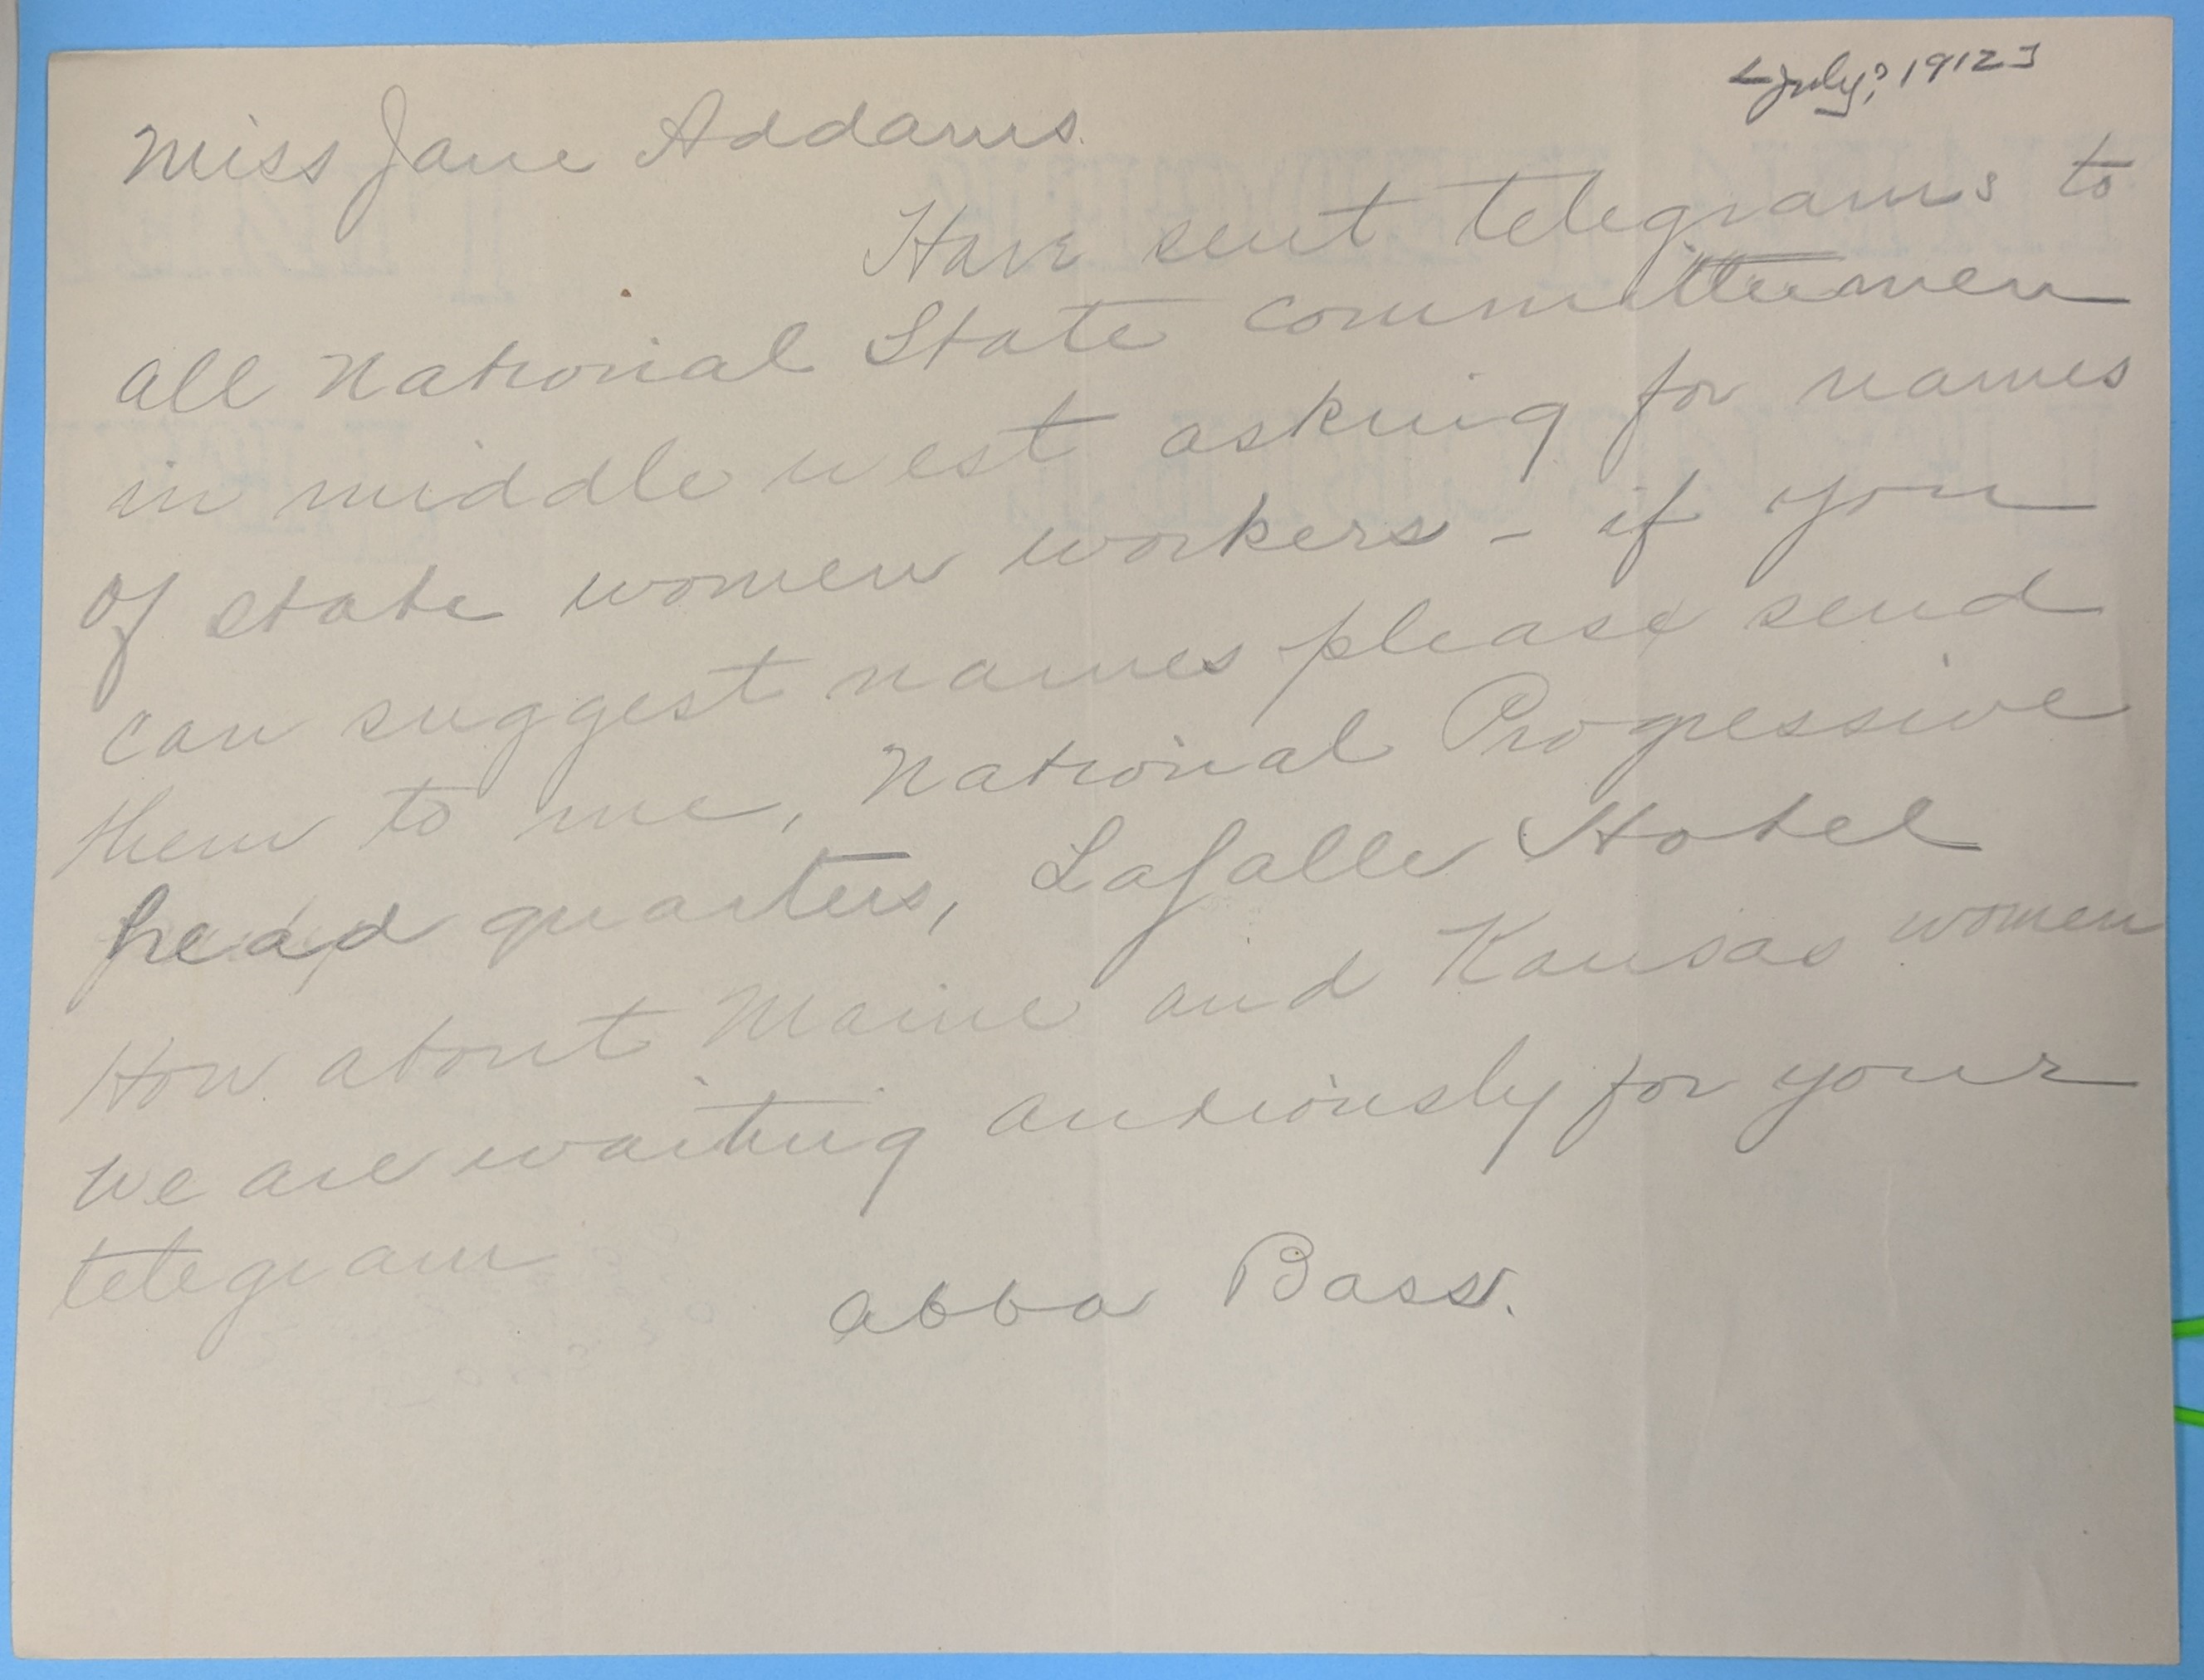 [July? 1912]
Miss Jane Addams.
Have sent telegrams to
all National State committeemen
in middle west asking for names
of state women workers - if you
can suggest names please send
them to me, National Progressive
head quarters, LaSalle Hotel
How about Maine and Kansas women
We are waiting anxiously for your
telegram
Abba Bass.